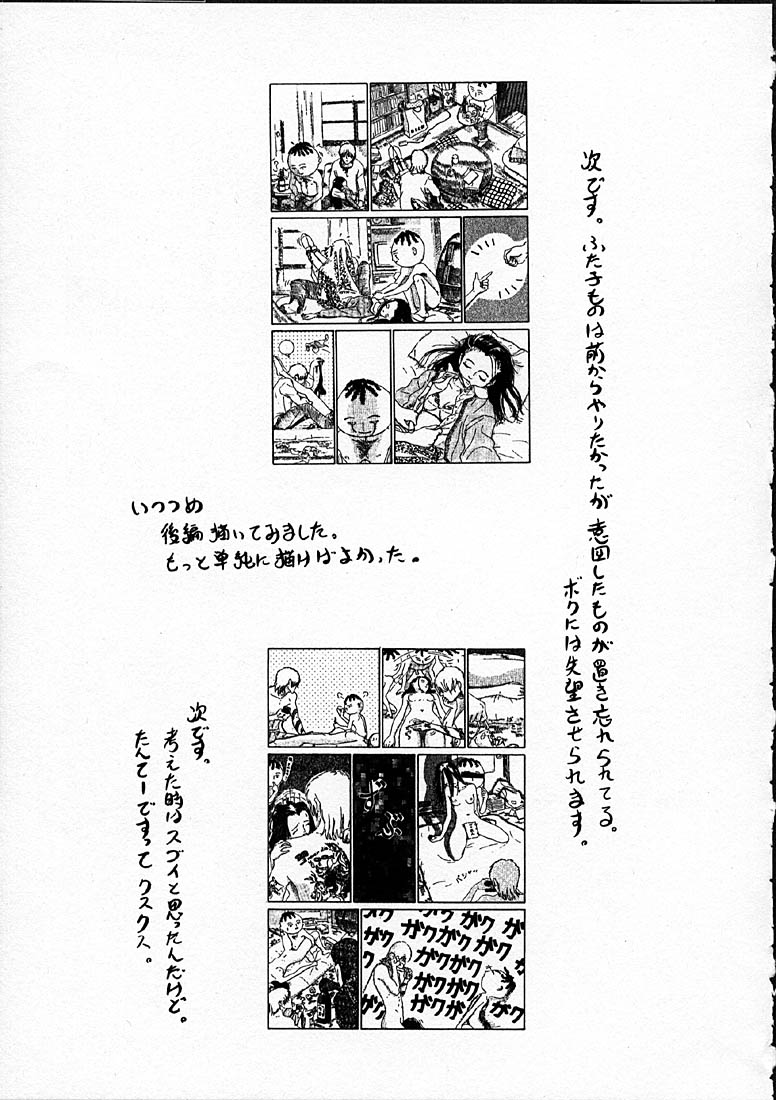 次です。ふた子ものは前からやりたかったが意図したものが置き忘れられてる。
ボクには失望させられます。
いつつめ
後編描いてみました。
もっと単純に描けばよかった。
ずぶっ
パシャッ
ガク ガク ガク ガク
ガク ガク ガク ガク
ガク ガク ガク
ガク ガク
ガク ガク ガク
次です。
考えた時はスゴイと思ったんだけど。
たんてーですって クスクス。